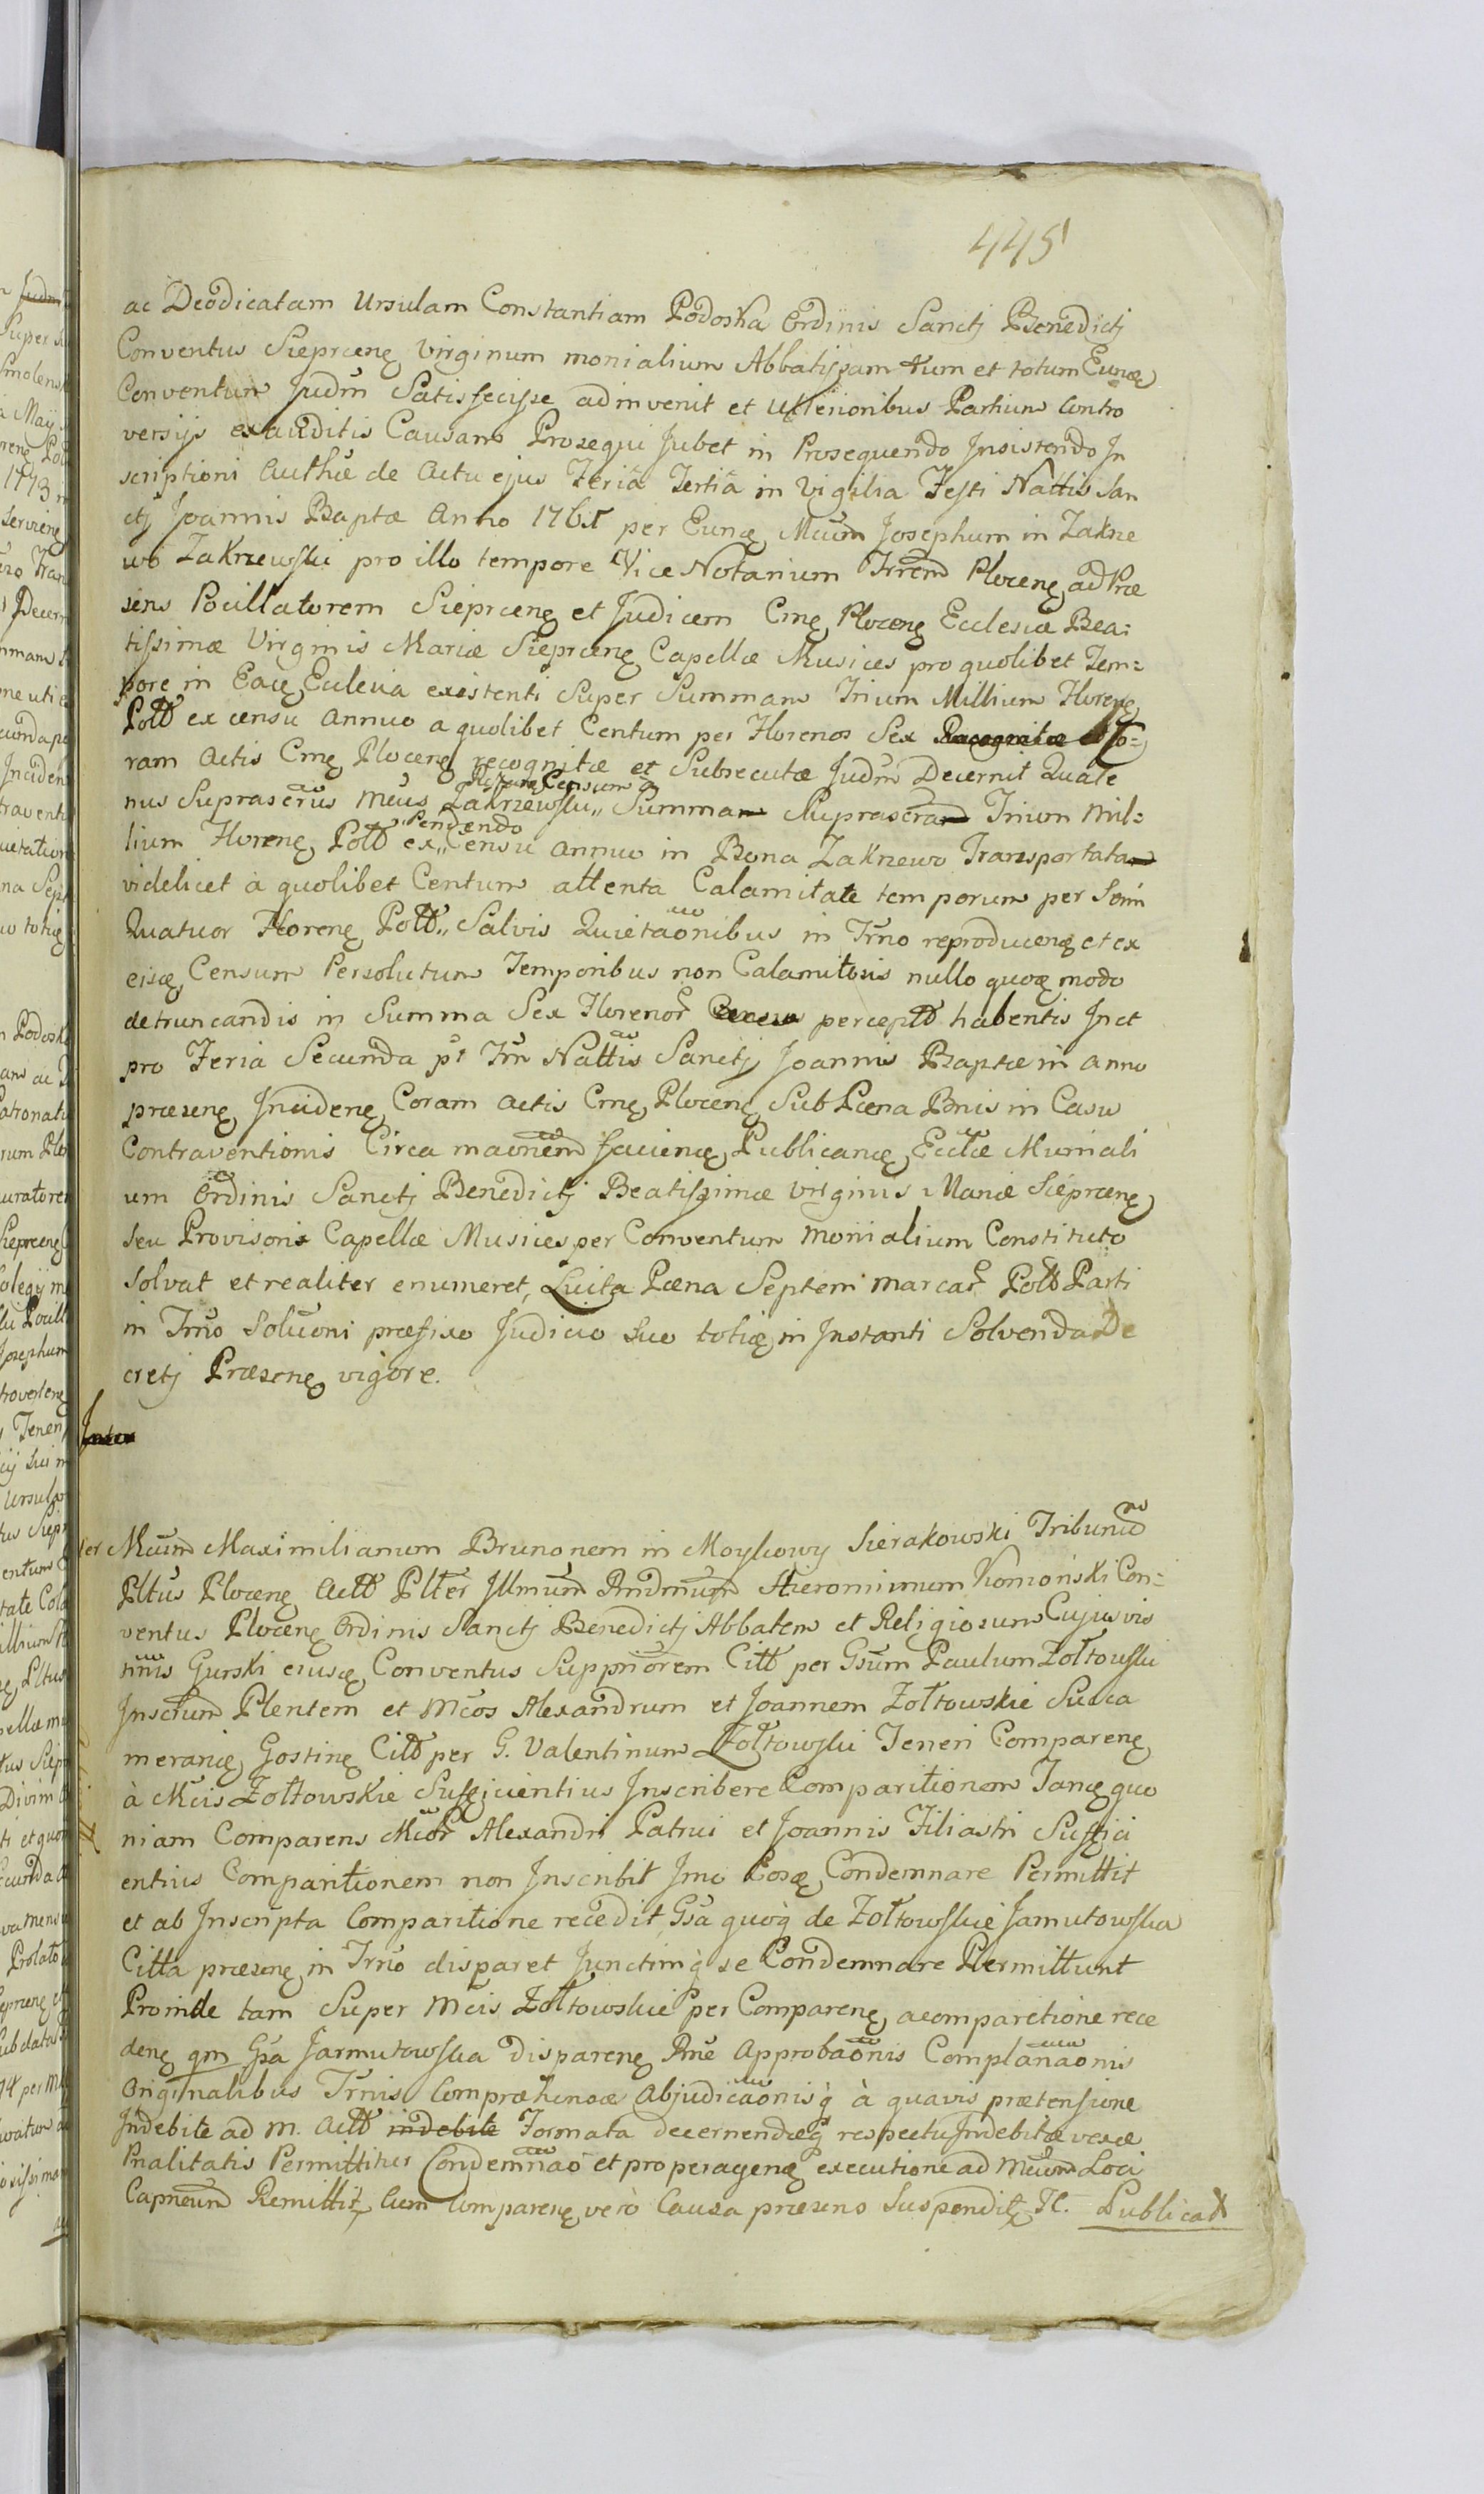 445
ac Deodicatam Ursulam Constantiam Podoska Ordinis Sanctj Benedictj
Conventus Sieprceng Virginum monialium Abbatissam tum et totum Eundę
Conventum Judm Satisfecisse adinvenit et Ulterioribus Partium Contro
versijs exauditis Causam Prosequi Jubet in Prosequendo Insistendo In
scriptioni Authæ de Actu ejus Feria Tertia in Vigilia Festi Nattis San
ctj Joannis Baptæ Anno 1765 per Eundę Mcum Josephum in Zakrze
wo Zakrzewski pro illo tempore Vice Notarium Trrem Ploceng ad Præ
sens Pocillatorem Sieprceng et Judicem Cmg Ploceng Ecclesiæ Bea:
tissimæ Virginis Mariæ Sieprceng Capellæ Musices pro quolibet Tem=
pore in Eadę Ecclesia existenti Super Summam Trium Millium Floreng
Poltt ex censu annuo a quolibet Centum per Florenos Sex Recognitæ Co=
ram Actis Cmg Ploceng recognitæ et Subsecutæ Judm Decernit Quate
nus Suprascrus Mcus Zakrzewski,, Summam Suprascram Trium Mil=
Censum a
lium Floreng Poltt ex,, Censu annuo in Bona Zakrzewo Transportatam
Pendendo
videlicet à quolibet Centum attenta Calamitate temporum per Som
Quatuor Floreng Poltt,, Salvis Quietaonibus in Trno reproduceng et ex
eisdę Censum Persolutum Temporibus non Calamitosis nullo quovę modo
detruncandis in Summa Sex Florenor Censu perceptt habentis Inct
pro Feria Secunda pt Fm Nattis Sanctj Joannis Baptæ in anno
præseng Incideng Coram Actis Cmg Ploceng Sub Pœna Bnis in Casu
Contraventionis Circa maonem faciendę Publicandę Ecclæ Moniali
um Ordinis Sanctj Benedictj Beatissimæ Virginis Mariæ Sieprceng
seu Provisoris Capellæ Musices per Conventum Monialium Constituto
Solvat et realiter enumeret, Luita Pœna Septem marcar Poltt Parti
in Trno Soluoni præfixo Judicio suo totidę in Instanti Solvenda De
cretj Præseng vigore.
Inter
ter Mcum Maximilianum Brunonem in Moykowy Sierakowski Tribunum
Pltus Ploceng Actt Plter Illmum Rndmum Hieronimum Komoński Con=
ventus Ploceng Ordinis Sanctj Benedictj Abbatem et Religiosum Cujusvis
nnis Gurski eiusdę Conventus Suppriorem Citt per Gsum Paulum Zołtowski
Inscrum Plentem et Mcos Alexandrum et Joannem Zołtowskie Succa
merandę Gosting Citt per G. Valentinum Zołtowski Teneri Compareng
à Mcis Zołtowskie Sufficientius Inscribere Comparitionem Tandę quo
niam Comparens Mcor Alexandri Patrui et Joannis Filiastri Suffici
entius Comparitionem non Inscribit Imo Eosdę Condemnare Permittit
et ab Inscripta Comparitione recedit, Gsa quoq de Zołtowskie Jarmutowska
Citta præseng in Trno disparet Junctimq se Condemnare Permittunt
Proinde tam Super Mcis Zołtowskie per Compareng a comparitione rece
deng qm Gsa Jarmutowska dispareng Rne Approbaonis Complanaonis
Originalibus Trnis Compræhensæ Abjudicaonisq à quavis prætensione
Indebite ad M. Actt indebite Formata decernendæq respectu Indebitæ vexæ
Pnalitatis Permittitur Condemnao et pro perageng executione ad Mcum Loci
Capneum Remittit, Cum Compareng verò Causa præsens Suspendit, Jt. Publicatt